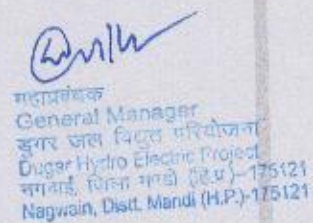 महाप्रबंधक
General Manager
डुगर जल विद्युत परियोजना
Dugar Hydro Electric Project
नगवाई, जिला मण्डी (हि.प्र.)-175121
Nagwain, Distt. Mandi (H.P.)-175121